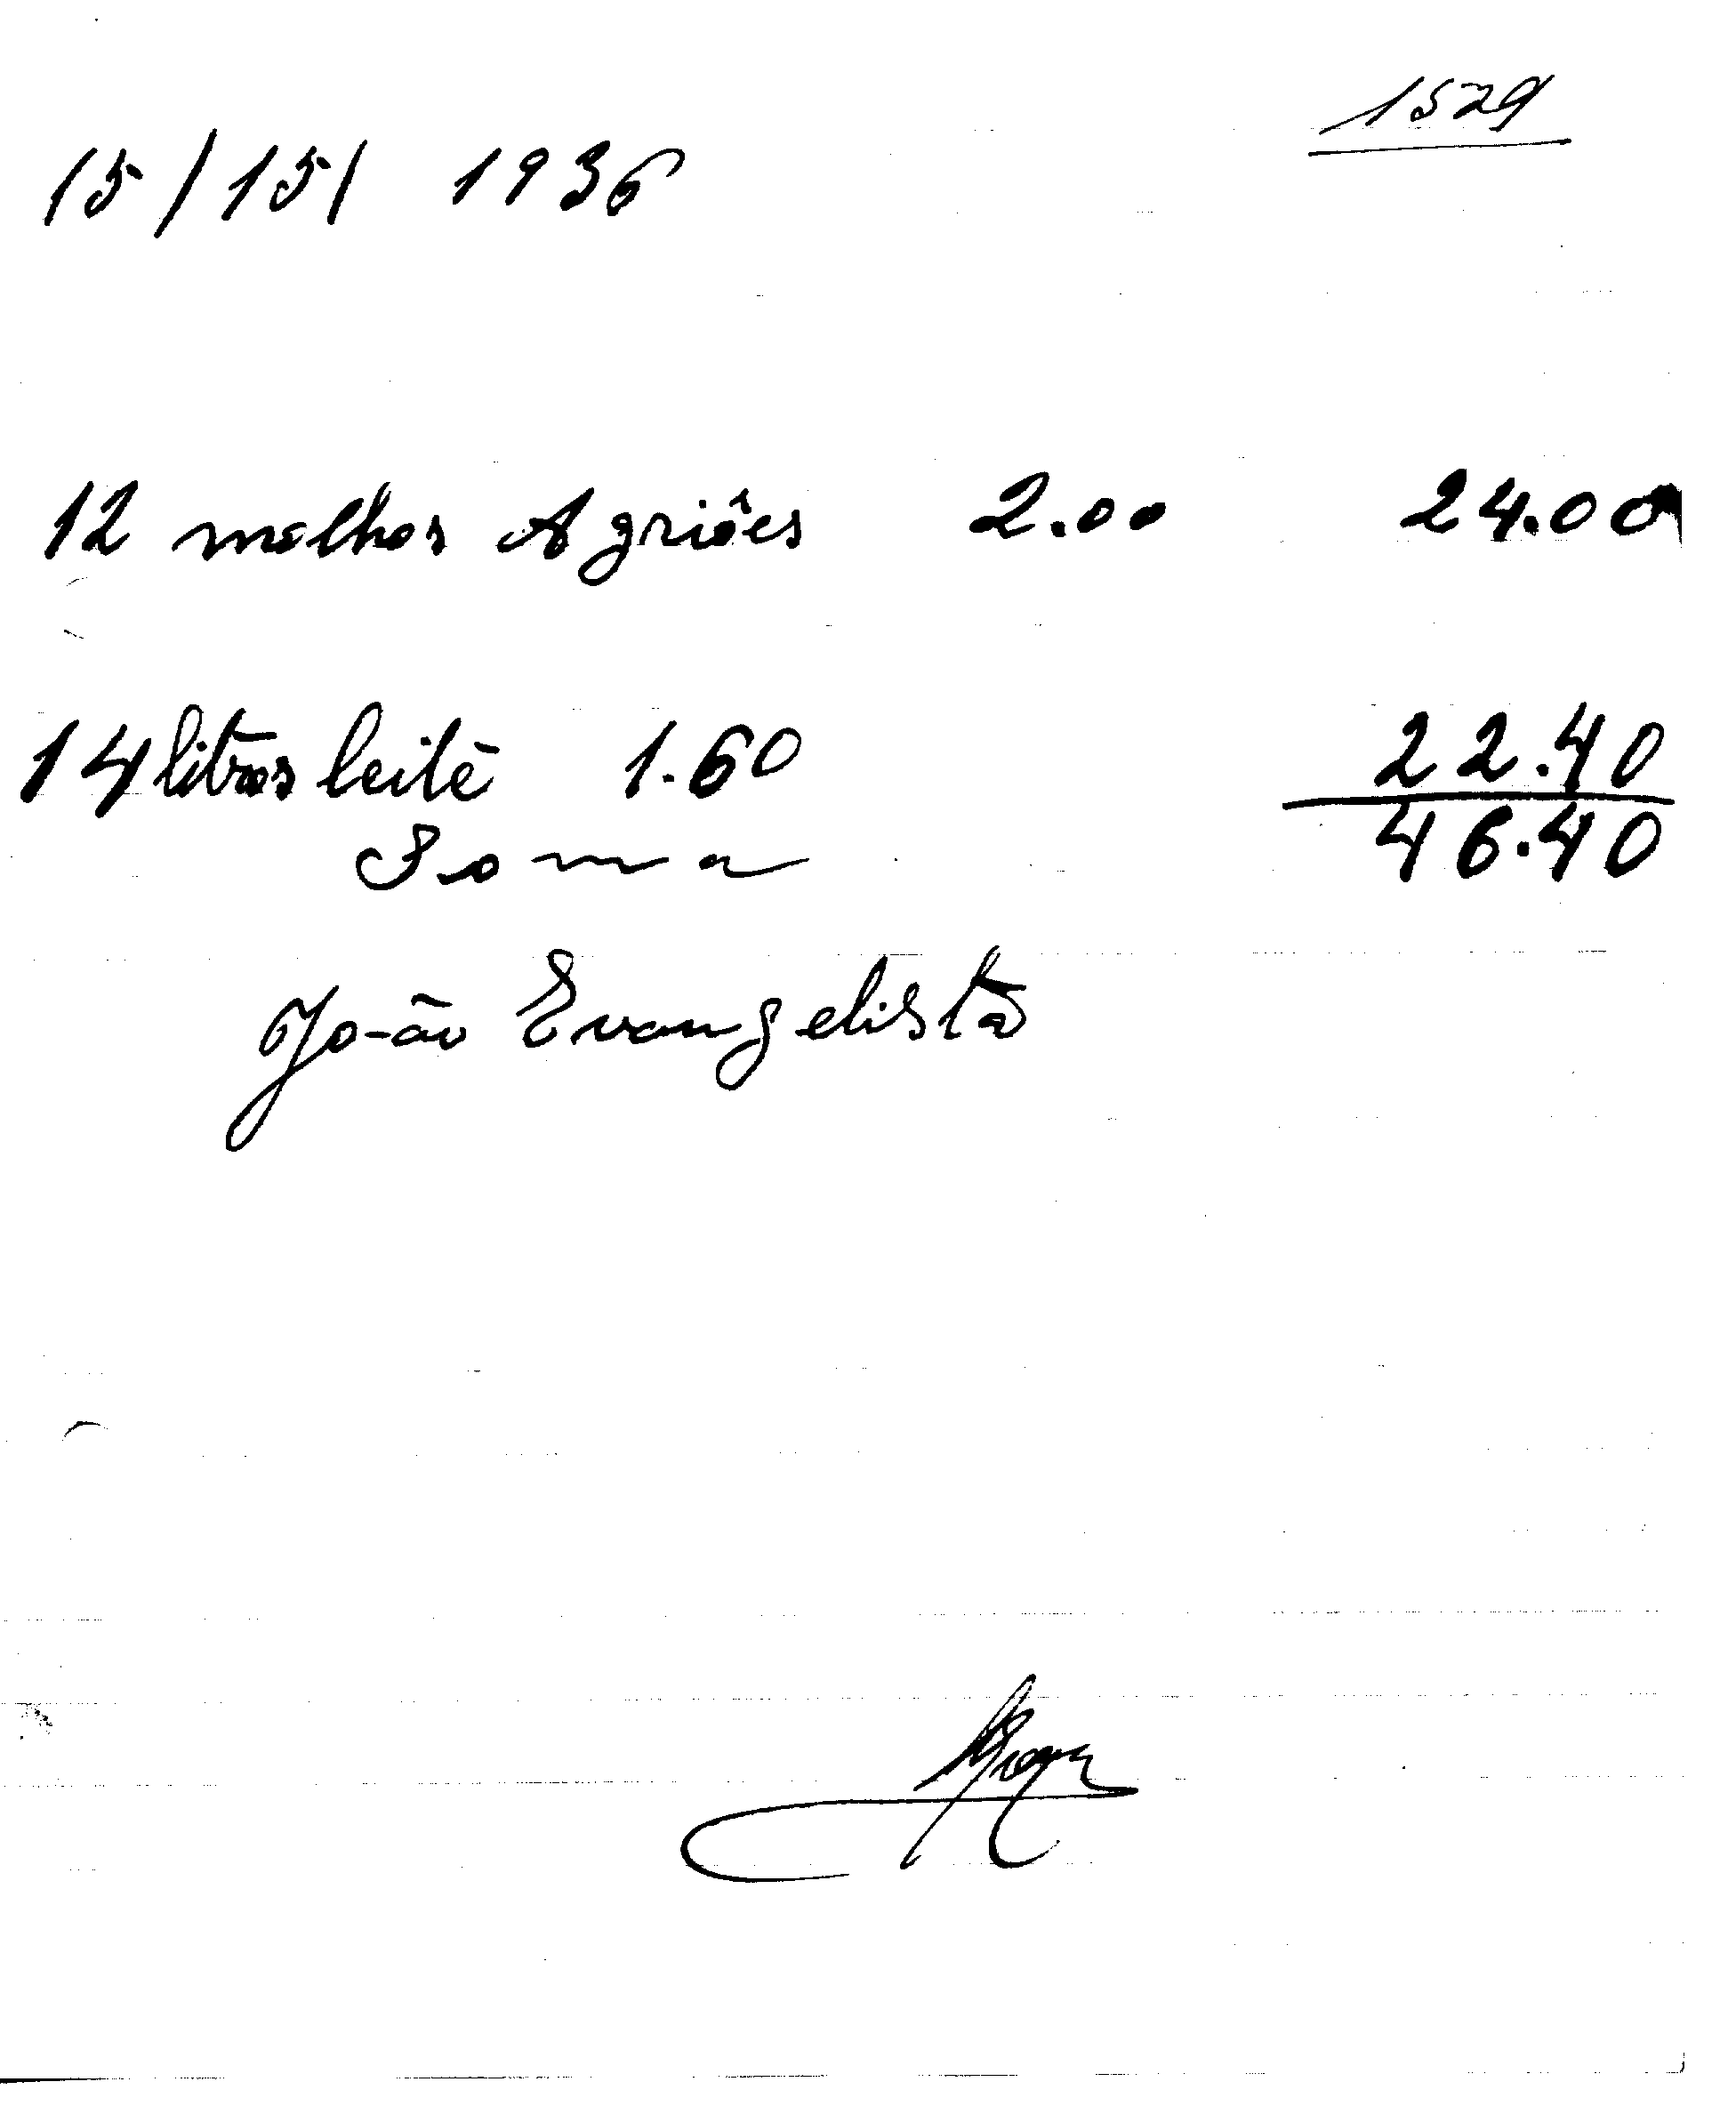 1529
15/15/ 1936
12 molhos Agriões 2.00 24.00
14 litros leite 1.60 22.40
Soma 46.40
João Evangelista